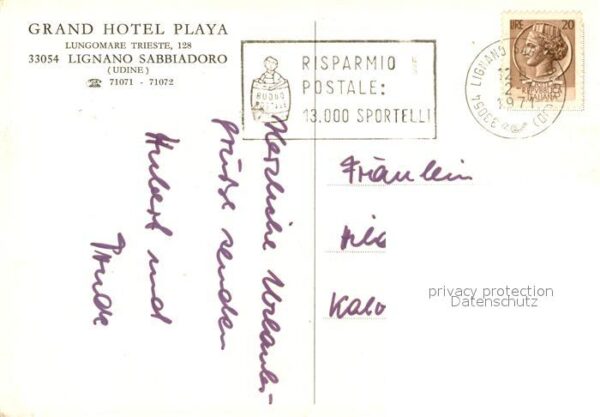 GRAND HOTEL PLAYA
LUNGOMARE TRIESTE, 128
33054 LIGNANO SABBIADORO
(UDINE)
☎ 71071 - 71072
RISPARMIO
POSTALE:
13.000 SPORTELLI
BUONO
POSTALE
LIRE 20
33054 LIGNANO
1971
Herzliche Urlaubs-
grüße senden
Hubert und
Trude
Fräulein
privacy protection
Datenschutz